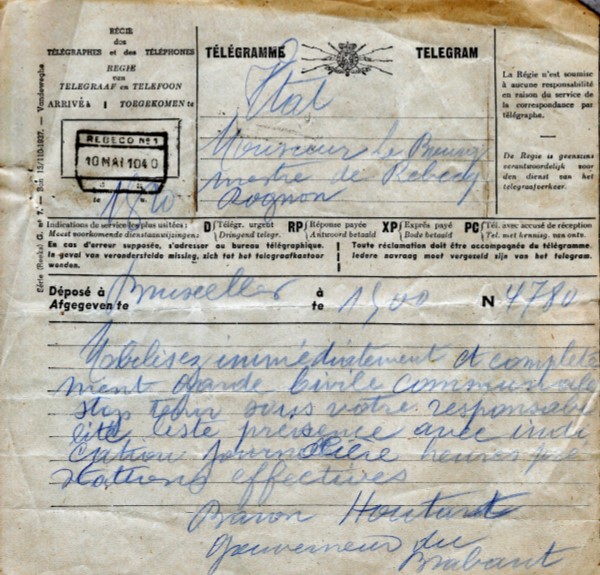 RÉGIE
des
TÉLÉGRAPHES et des TÉLÉPHONES
REGIE
van
TELEGRAAF en TELEFOON
ARRIVÉ à | TOEGEKOMEN te
REBECQ No 1
10 MAI 1940
1820
TÉLÉGRAMME TELEGRAM
Etat
Monsieur Le Bourg
mestre de Rebecq
Rognon
La Régie n'est soumise
à aucune responsabilité
en raison du service de
la correspondance par
télégraphe.
De Regie is geenszins
verantwoordelijk voor
den dienst van het
telegraafverkeer.
Indications de service les plus usitées :
Meest voorkomende dienstaanwijzingen:
D Télégr. urgent
Dringend telegr.
RP Réponse payée
Antwoord betaald
XP Exprès payé
Bode betaald
PC Tél. avec accusé de réception
Tel. met kennisg. van ontv.
En cas d'erreur supposée, s'adresser au bureau télégraphique.
In geval van veronderstelde missing, zich tot het telegraafkantoor
wenden.
Toute réclamation doit être accompagnée du télégramme.
Iedere navraag moet vergezeld zijn van het telegram.
Déposé à Bruxelles à 1500 N 4780
Afgegeven te te
Mobilisez immédiatement et complète
ment Garde Civile communale
stop tenir sous votre responsabi
lité liste présence avec indi
cation journalière heures pre
stations effectives
Baron Houtart
Gouverneur du
Brabant